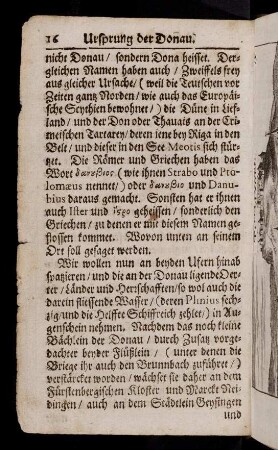 16 Ursprung der Donau.
nicht Donau / sondern Dona heisset. Der-
gleichen Namen haben auch / Zweiffels frey
aus gleicher Ursache / (weil die Teutschen vor
Zeiten gantz Norden / wie auch das Europäi-
sche Scythien bewohnet /) die Düne in Lief-
land / und der Don oder Thauais an der Cri-
meischen Tartarey / deren jene bey Riga in den
Belt / und dieser in den See Meotis sich stür-
tzet. Die Römer und Griechen haben das
Wort δανουβιος (wie ihnen Strabo und Pto-
lomæus nennet /) oder δανυβιος und Danu-
bius daraus gemacht. Sonsten hat er ihnen
auch Ister und ἴςρο geheissen / sonderlich den
Griechen / zu denen er mit diesem Namen ge-
flossen kommet. Wovon unten an seinem
Ort soll gesaget werden.
Wir wollen nun an beyden Ufern hinab
spatzieren / und die an der Donau ligende Oer-
ter / Länder und Herrschafften / so wol auch die
darein fliessende Wasser / (deren Plinius sech-
zig / und die Helffte Schiffreich zehlet /) in Au-
genschein nehmen. Nachdem das noch kleine
Bächlein der Donau / durch Zusatz vorge-
dachter beyder Flüßlein / (unter denen die
Briege ihr auch den Brunnback zuführet /)
verstärcket worden / wächset sie daher an dem
Fürstenbergischen Kloster und Marckt Nei-
dingen / auch an dem Städtlein Geysingen
und